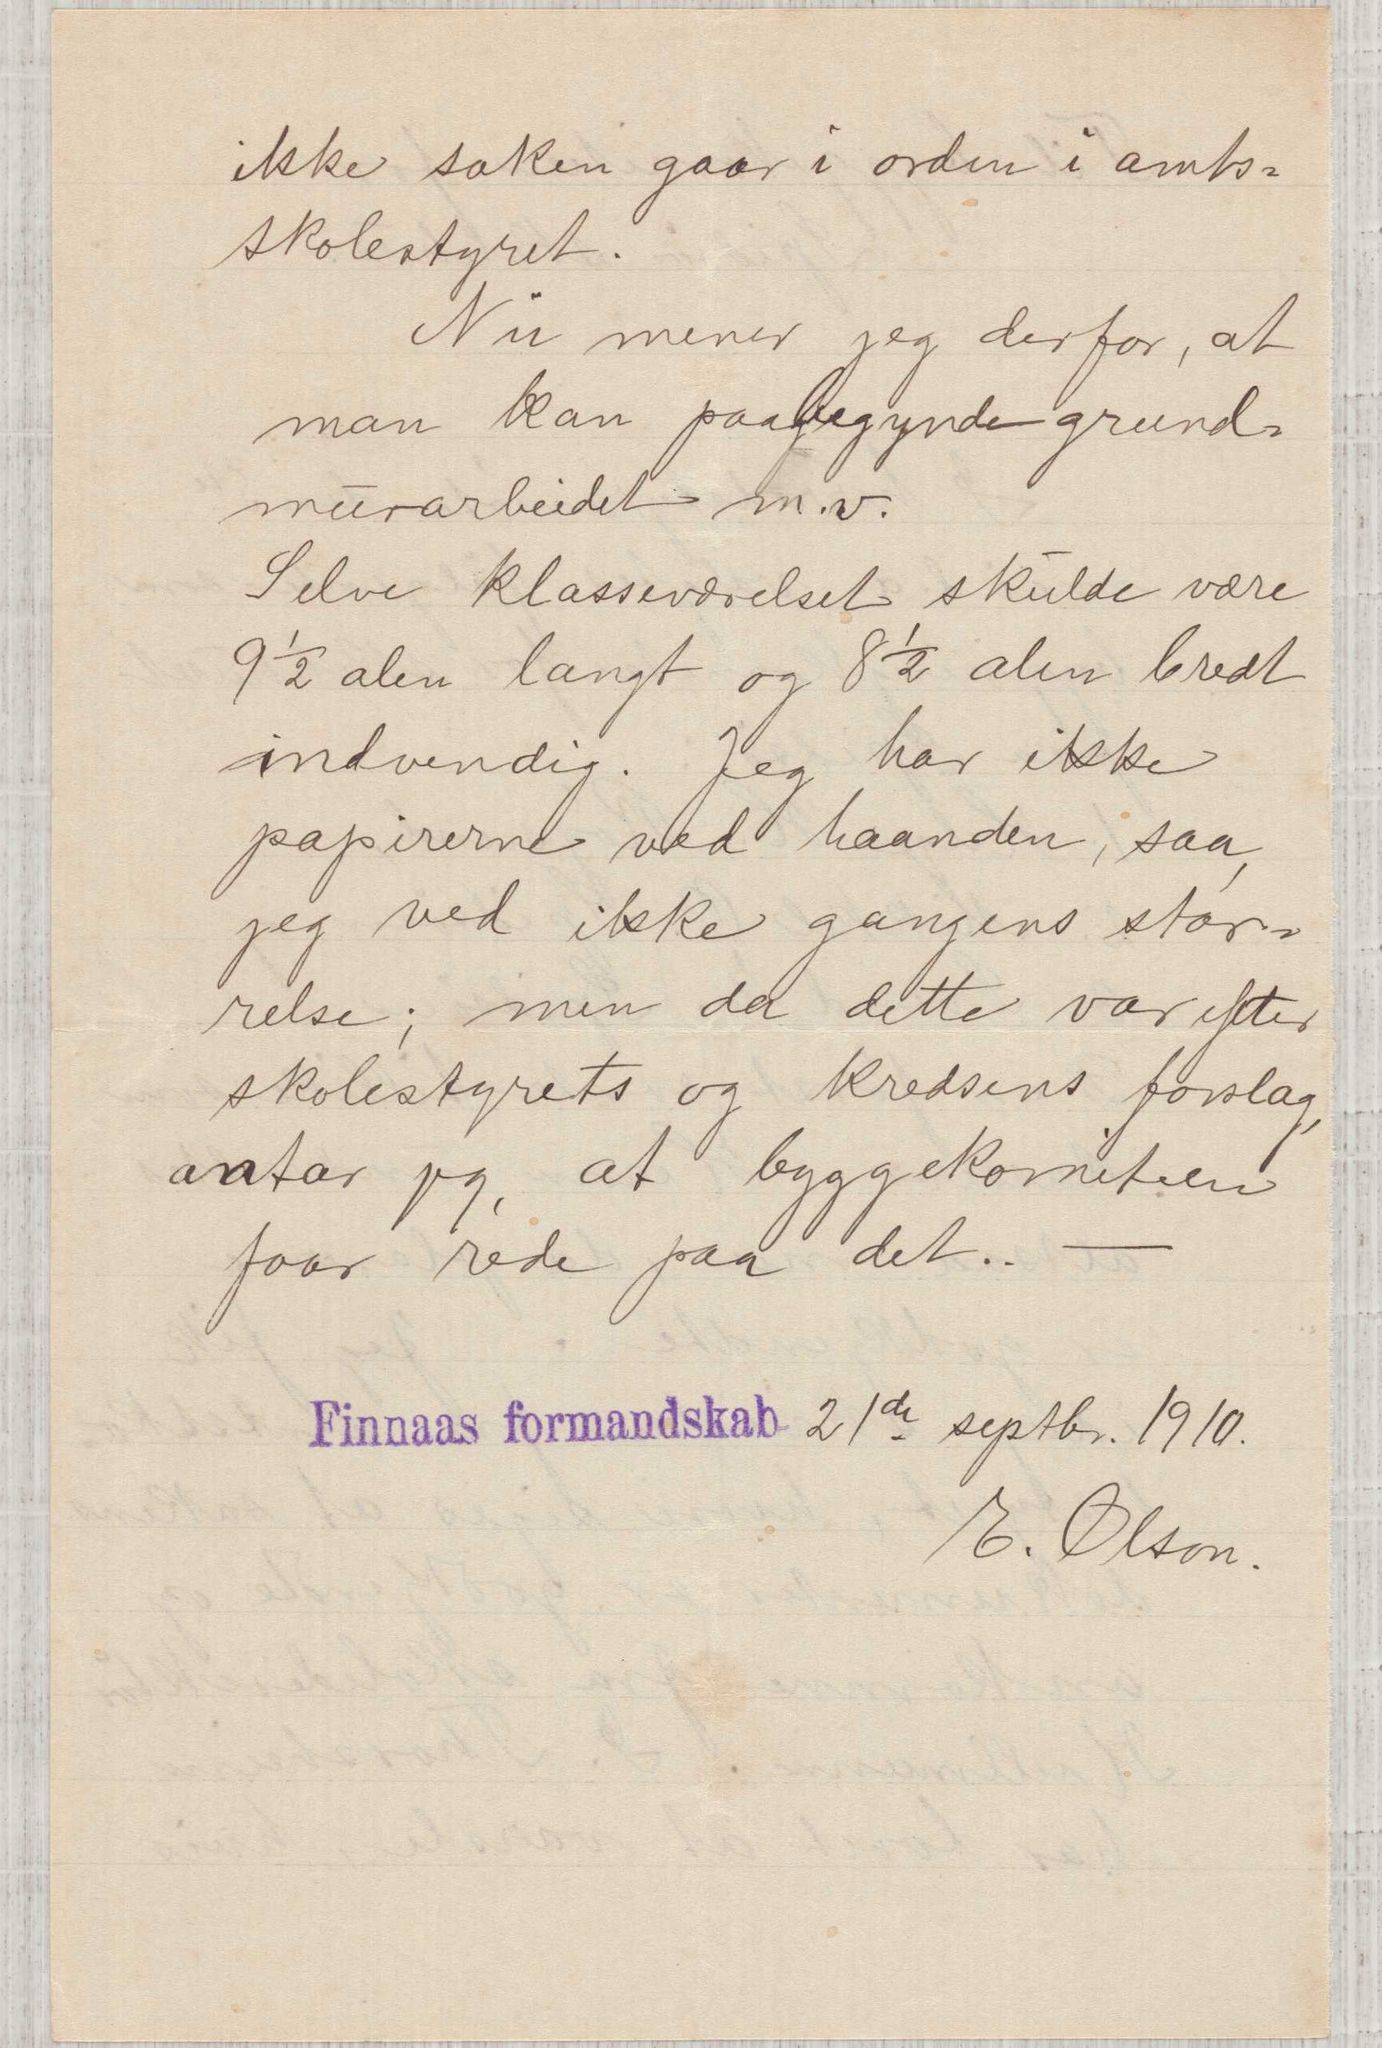 ikke saken gaar i orden i amts-
skolestyret.
Nu mener jeg derfor, at
man kan paabegynde grund-
murarbeidet m.v.
Selve klasseværelset skulde være
9½ alen langt og 8½ alen bredt
indvendig. Jeg har ikke
papirerne ved haanden, saa,
jeg ved ikke gangens stør-
relse; men da dette var efter
skolestyrets og kredsens forslag,
antar jeg, at byggekomiteen
faar rede paa det.. —
Finnaas formandskab 21de septbr. 1910.
E. Olson.